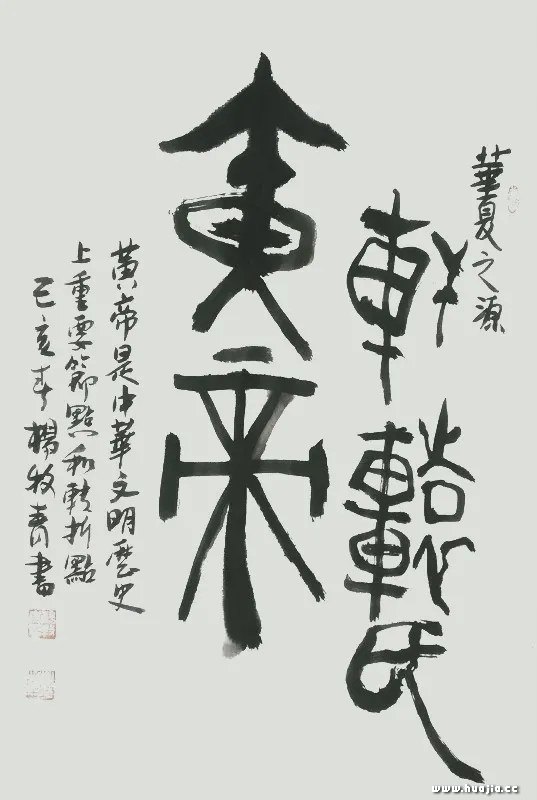 華夏之源
軒轅氏
黃帝
黃帝是中華文明歷史
上重要節點和轉折點
己亥年楊牧青書
www.huajia.cc